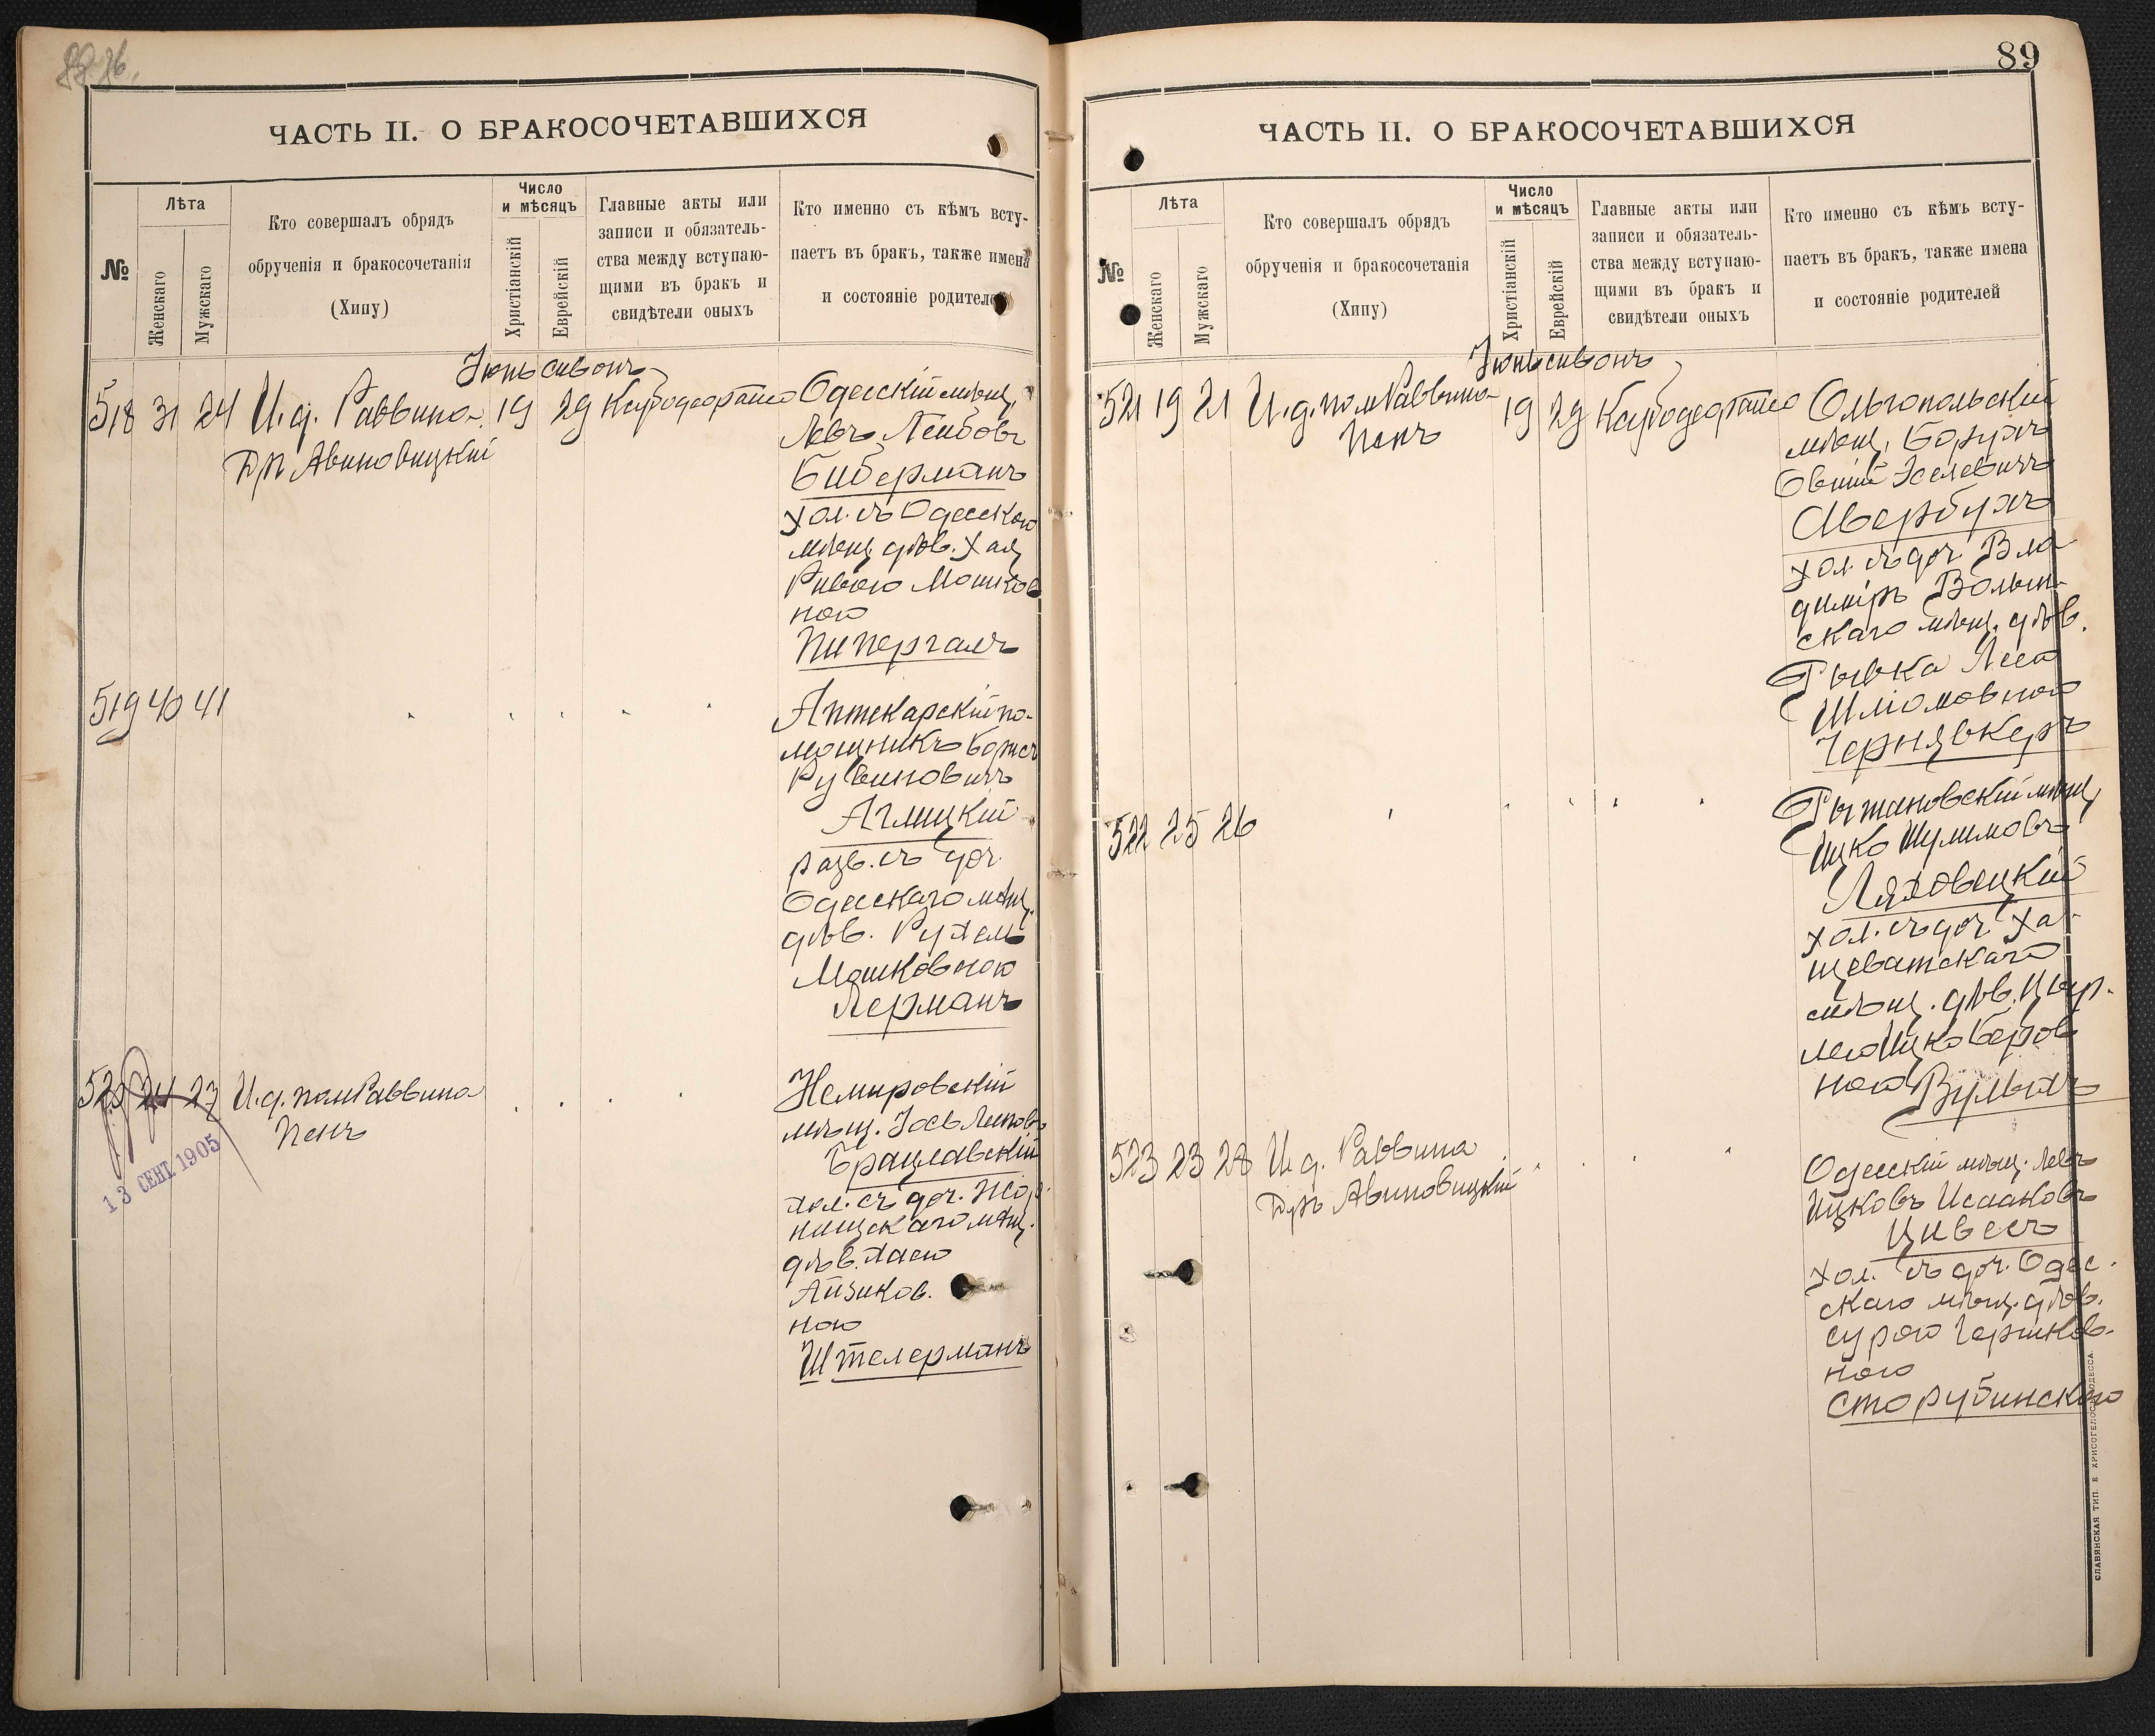 ЧАСТЬ II. О БРАКОСОЧЕТАВШИХСЯ
№
Лѣта
Женскаго
Мужскаго
Кто совершалъ обрядъ
обрученія и бракосочетанія
(Хипу)
Число
и мѣсяцъ
Христіанскій
Еврейскій
Главные акты или
записи и обязатель-
ства между вступаю-
щими въ бракъ и
свидѣтели оныхъ
Кто именно съ кѣмъ всту-
паетъ въ бракъ, также имена
и состояніе родителей
Іюнь сивонъ
518 31 24 И. д. Раввина 19 29
Дръ Авиновицкій
Одесскій мѣщ.
Левъ Лейбовъ
Биберманъ
хол. съ Одесскою
мѣщ. дѣв. Хая
Ривою Мошков
ною
Пипергалъ
519 40 41
Аптекарскій по-
мощникъ Борисъ
Рувиновичъ
Аглицкій
разв. съ доч.
Одесскаго мѣщ.
дѣв. Рухель
Мошковною
Лерманъ
520 24 27 И. д. пом Раввина
Пенъ
Немировскій
мѣщ. Іось Липовъ
Брацлавскій
хол. съ доч. Жор
нищскаго мѣщ.
дѣв. Хаею
Айзиков.
ною
Штелерманъ
13 СЕНТ. 1905
89
ЧАСТЬ II. О БРАКОСОЧЕТАВШИХСЯ
№
Лѣта
Женскаго
Мужскаго
Кто совершалъ обрядъ
обрученія и бракосочетанія
(Хипу)
Число
и мѣсяцъ
Христіанскій
Еврейскій
Главные акты или
записи и обязатель-
ства между вступаю-
щими въ бракъ и
свидѣтели оныхъ
Кто именно съ кѣмъ всту-
паетъ въ бракъ, также имена
и состояніе родителей
Іюнь сивонъ
521 19 21 И. д. пом Раввина 19 29
Пенъ
Ольгопольскій
мѣщ. Борухъ
Овшій Хселевичъ
Авербухъ
хол. съ доч. Вла
диміръ Волын-
скаго мѣщ. дѣв.
Рывка Леею
Шліомовною
Чернявкеръ
522 25 26
Рыжановскій мѣщ.
Ицко Шулимовъ
Ляховецкій
хол. съ доч. Ха-
щеватскаго
мѣщ. дѣв. Цыр-
лею Ицко Беров
ною Вульхъ
523 23 28 И. д. Раввина
Дръ Авиновицкій
Одесскій мѣщ. Левъ
Ицковъ Исааковъ
Цивесъ
хол. съ доч. Одес-
скаго мѣщ. дѣв.
Сурою Гершков-
ною
Сторубинскою
СЛАВЯНСКАЯ ТИП. Е. ХРИСОГЕЛОСЪ ОДЕССА.